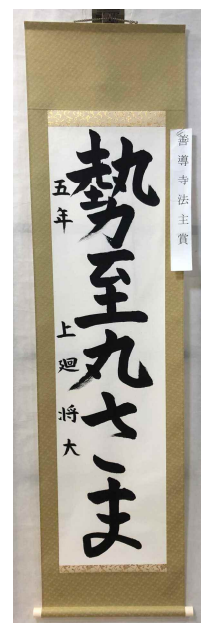 善導寺法主賞
勢至丸さま
五年 上廻将大